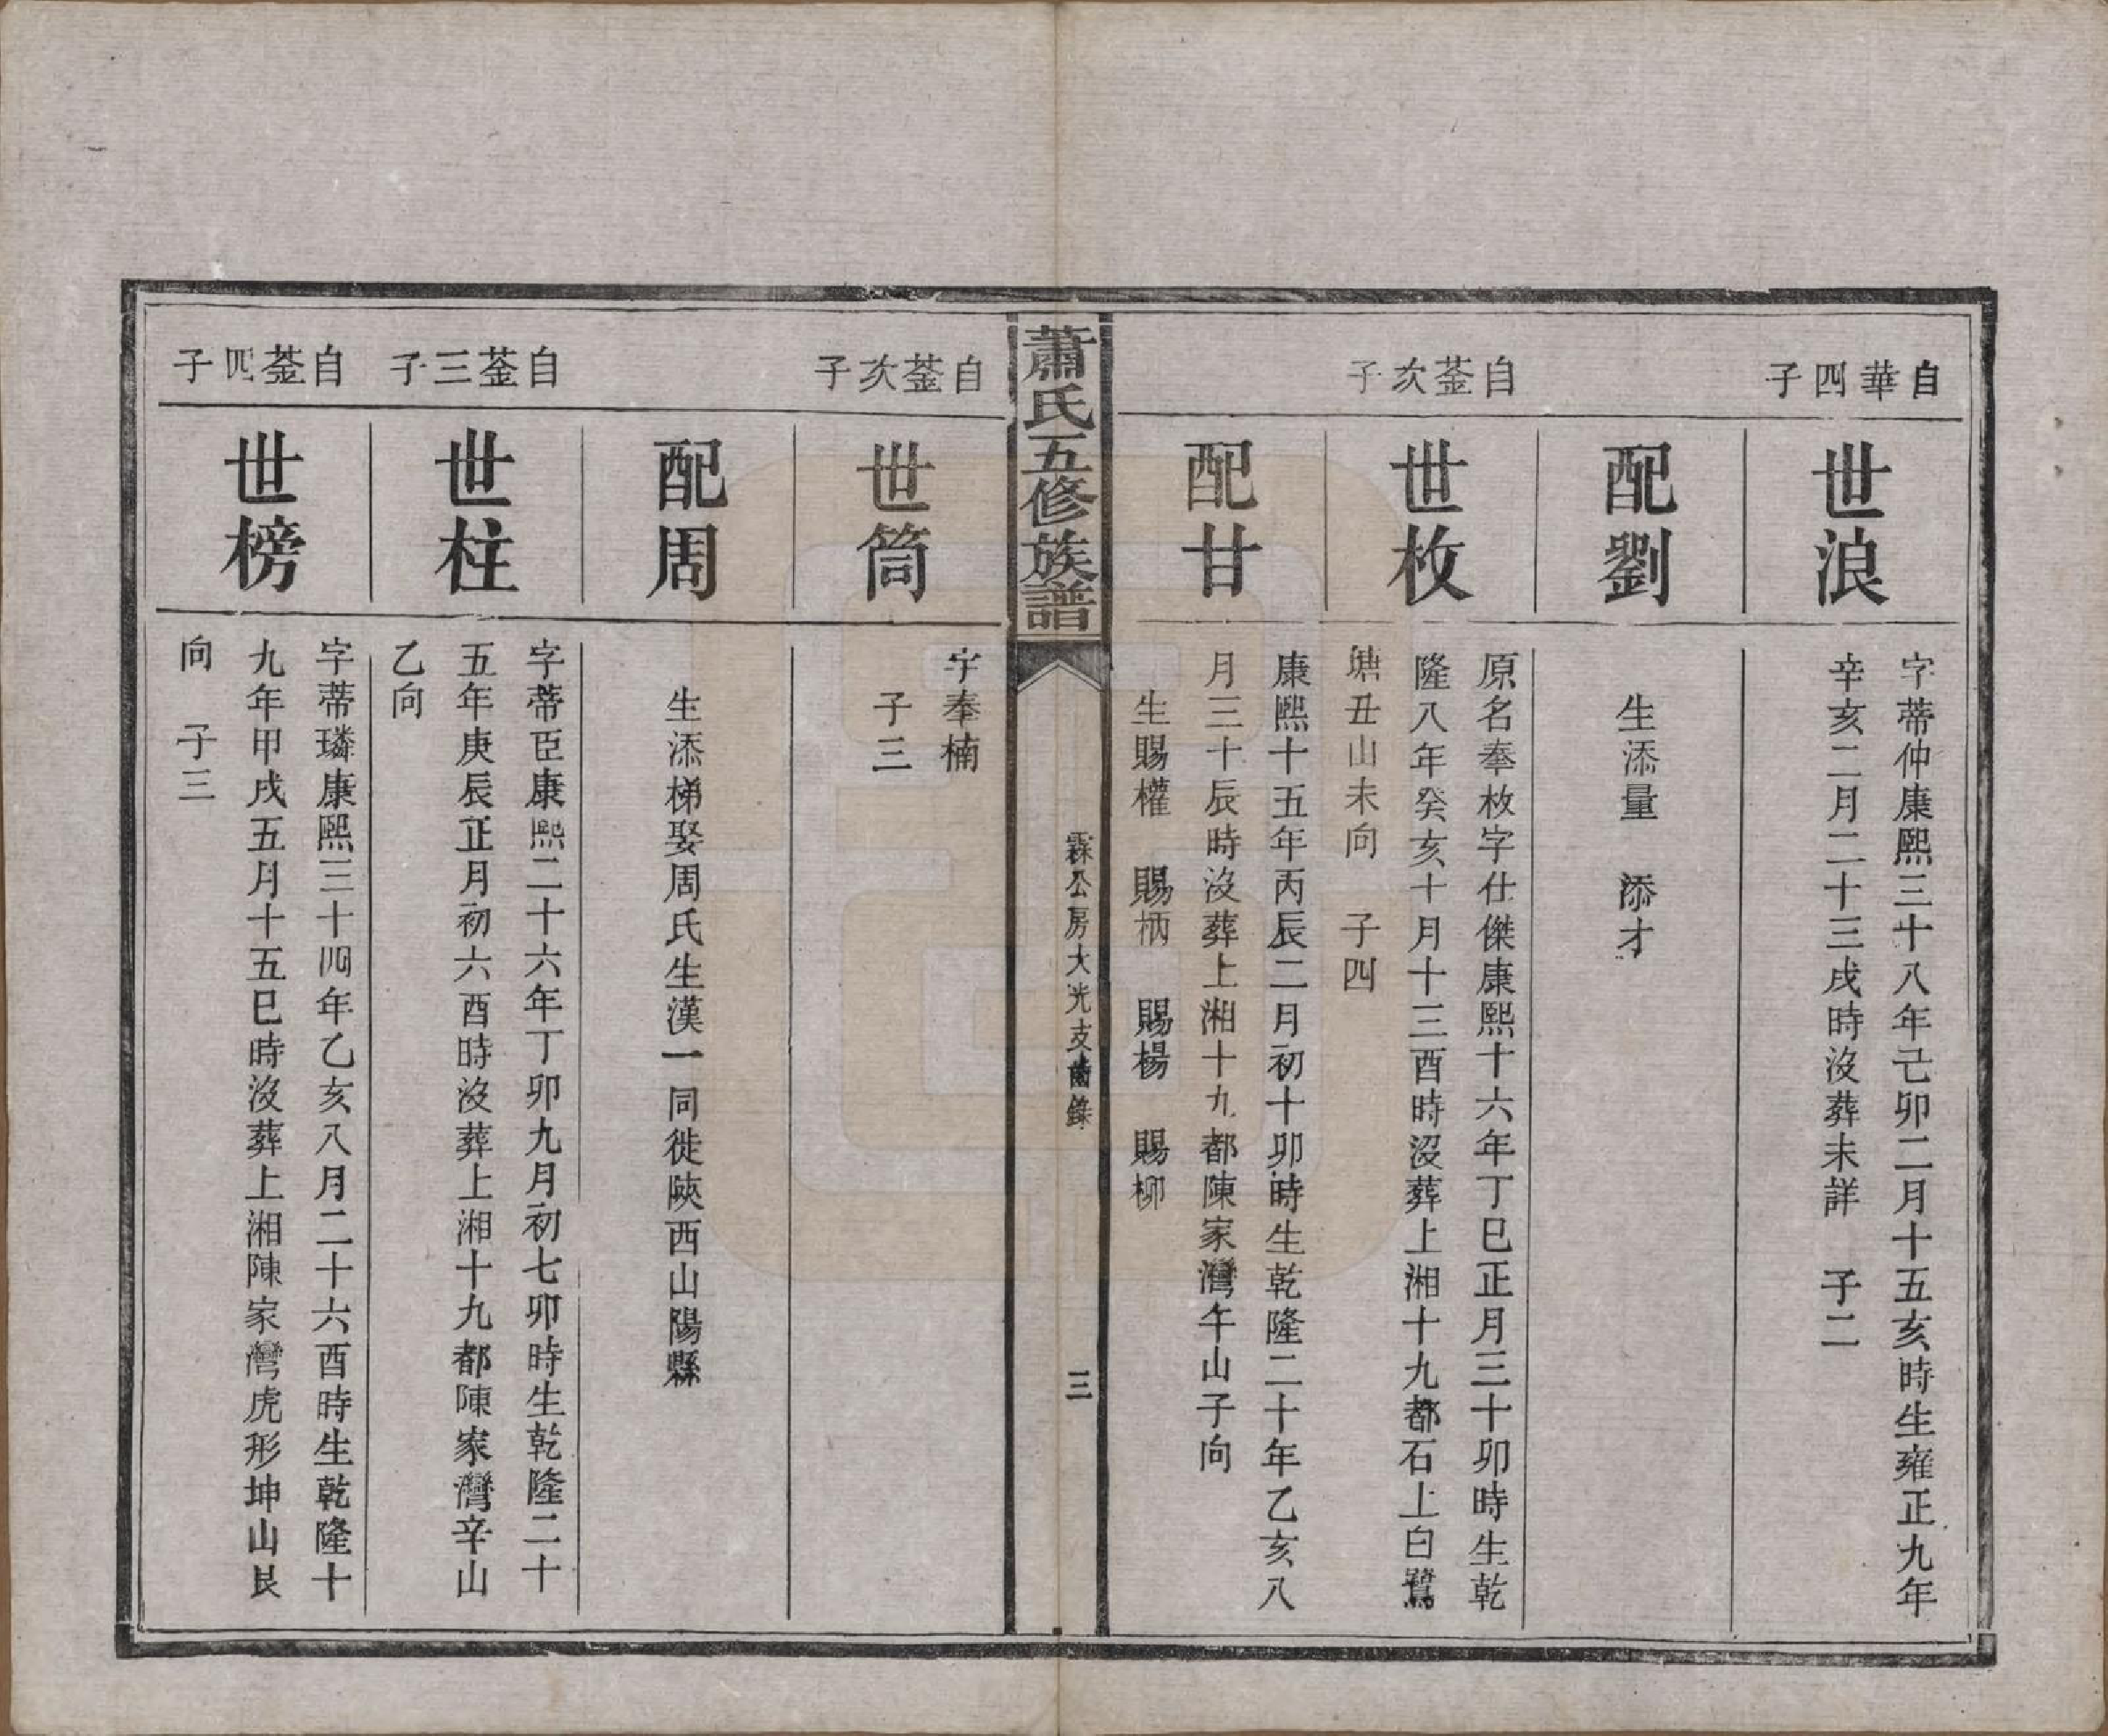 自華四子
世浪
字蒂仲康熙三十八年己卯二月十五亥時生雍正九年
辛亥二月二十三戌時沒葬未詳　子二
配劉
生添量　添才
自崟次子
世枚
原名奉枚字仕傑康熙十六年丁巳正月三十卯時生乾
隆八年癸亥十月十三酉時沒葬上湘十九都石上白鷺
塘丑山未向　子四
配甘
康熙十五年丙辰二月初十卯時生乾隆二十年乙亥八
月三十辰時沒葬上湘十九都陳家灣午山子向
生賜權　賜柄　賜楊　賜柳
蕭氏五修族譜
霖公房大光支齒錄
三
自崟次子
世筒
字奉楠
子三
配周
生添梯娶周氏生漢一同徙陝西山陽縣
自崟三子
世柱
字蒂臣康熙二十六年丁卯九月初七卯時生乾隆二十
五年庚辰正月初六酉時沒葬上湘十九都陳家灣辛山
乙向
自崟四子
世榜
字蒂璘康熙三十四年乙亥八月二十六酉時生乾隆十
九年甲戌五月十五巳時沒葬上湘陳家灣虎形坤山艮
向　子三